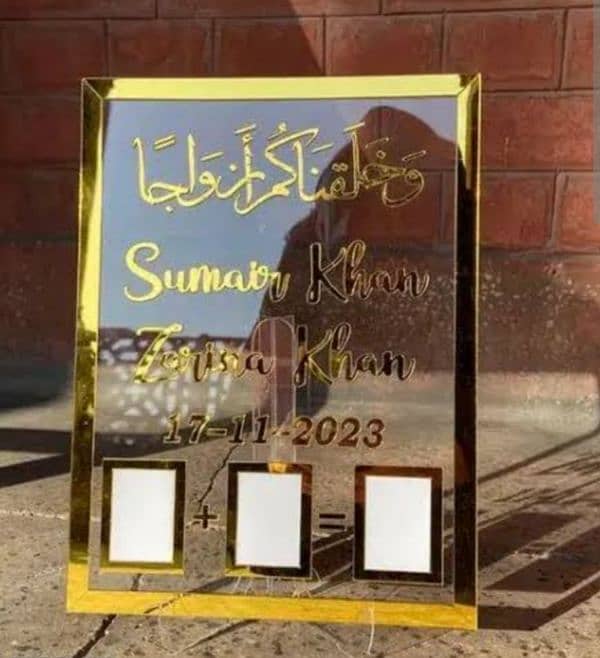 وَخَلَقْنَاكُمْ أَزْوَاجًا
Sumair Khan
Zorina Khan
17-11-2023
+ =